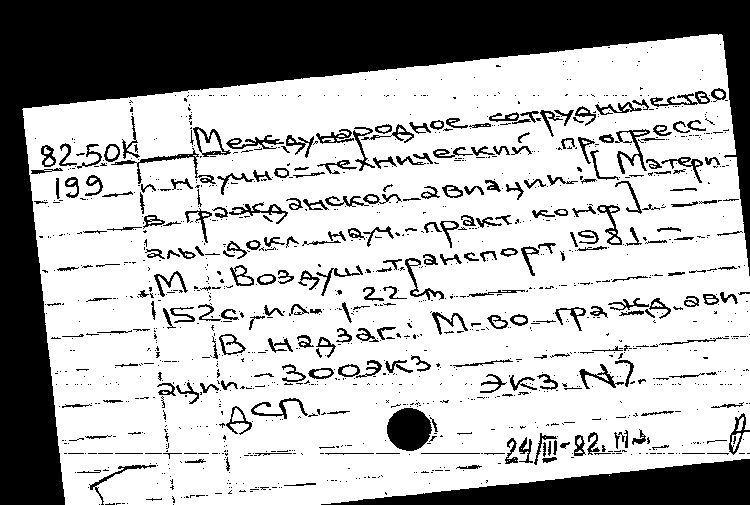 82-50К
199
Международное сотрудничество
и научно-технический прогресс
в гражданской авиации: [Матери-
алы докл. науч.-практ. конф]. —
М.: Воздуш. транспорт, 1981. —
152с., ил. ; 22 cm.
В надзаг.: М-во гражд. ави-
ации. - 300экз.
экз. N7.
ДСП.
24/III-82.